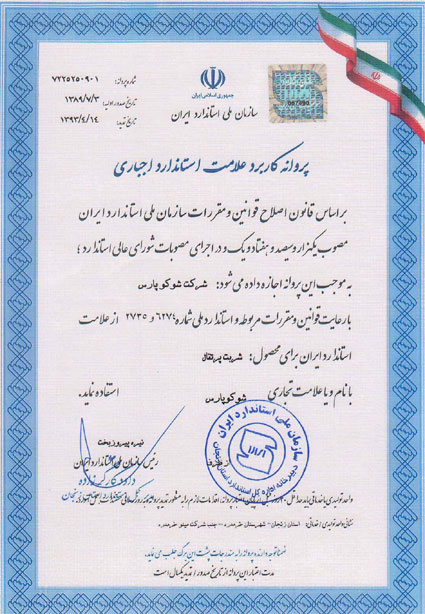 جمهوری اسلامی ایران
سازمان ملی استاندارد ایران
شماره پروانه: ۷۲۲۵۲۵۰۹۰۱
تاریخ صدور اولیه: ۱۳۸۹/۷/۳
تاریخ تمدید: ۱۳۹۳/۴/۱۴
پروانه کاربرد علامت استاندارد اجباری
بر اساس قانون اصلاح قوانین و مقررات سازمان ملی استاندارد ایران
مصوب یکهزار و سیصد و هفتاد و یک و در اجرای مصوبات شورای عالی استاندارد ؛
به موجب این پروانه اجازه داده می شود: شرکت شوکو پارس
با رعایت قوانین و مقررات مربوطه و استاندارد ملی شماره ۶۲۷۴ و ۲۷۳۵ از علامت
استاندارد ایران برای محصول: شربت پرتقال
با نام و یا علامت تجاری شوکو پارس استفاده نماید.
نیره پیروزبخت
رئیس سازمان ملی استاندارد ایران
از طرف
سازمان ملی استاندارد ایران
نشانی واحد تولیدی / خدماتی: استان زنجان - شهرستان خرمدره - جنب شرکت مینو خرمدره
ضمنا توجه دارنده پروانه را به مندرجات پشت این برگ جلب می نماید.
مدت اعتبار این پروانه از تاریخ صدور / تمدید یکسال است